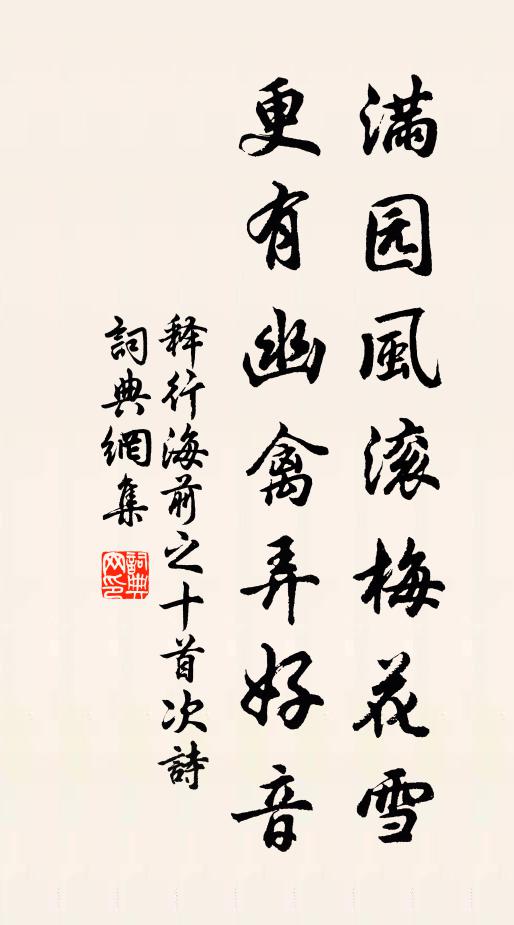 满园風滚梅花雪
更有幽禽弄好音
释行海前之十首次詩
詞典網集
詞典
网印